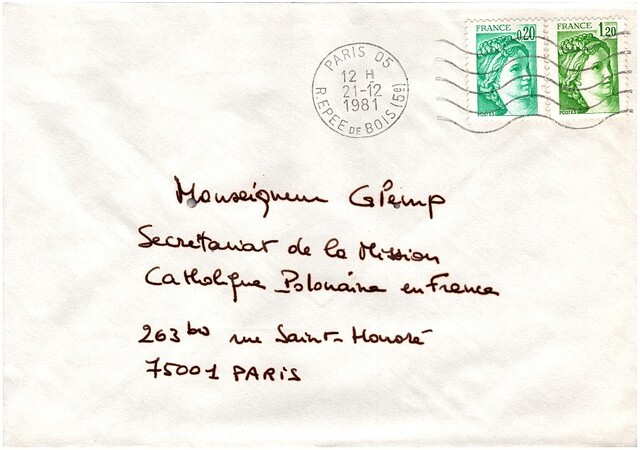 FRANCE 0,20
FRANCE 1,20
POSTES
POSTES
PARIS 05
12 H
21-12
1981
R. EPEE DE BOIS (5e)
Monseigneur Glemp
Secrétariat de la Mission
Catholique Polonaise en France
263 bis rue Saint-Honoré
75001 PARIS